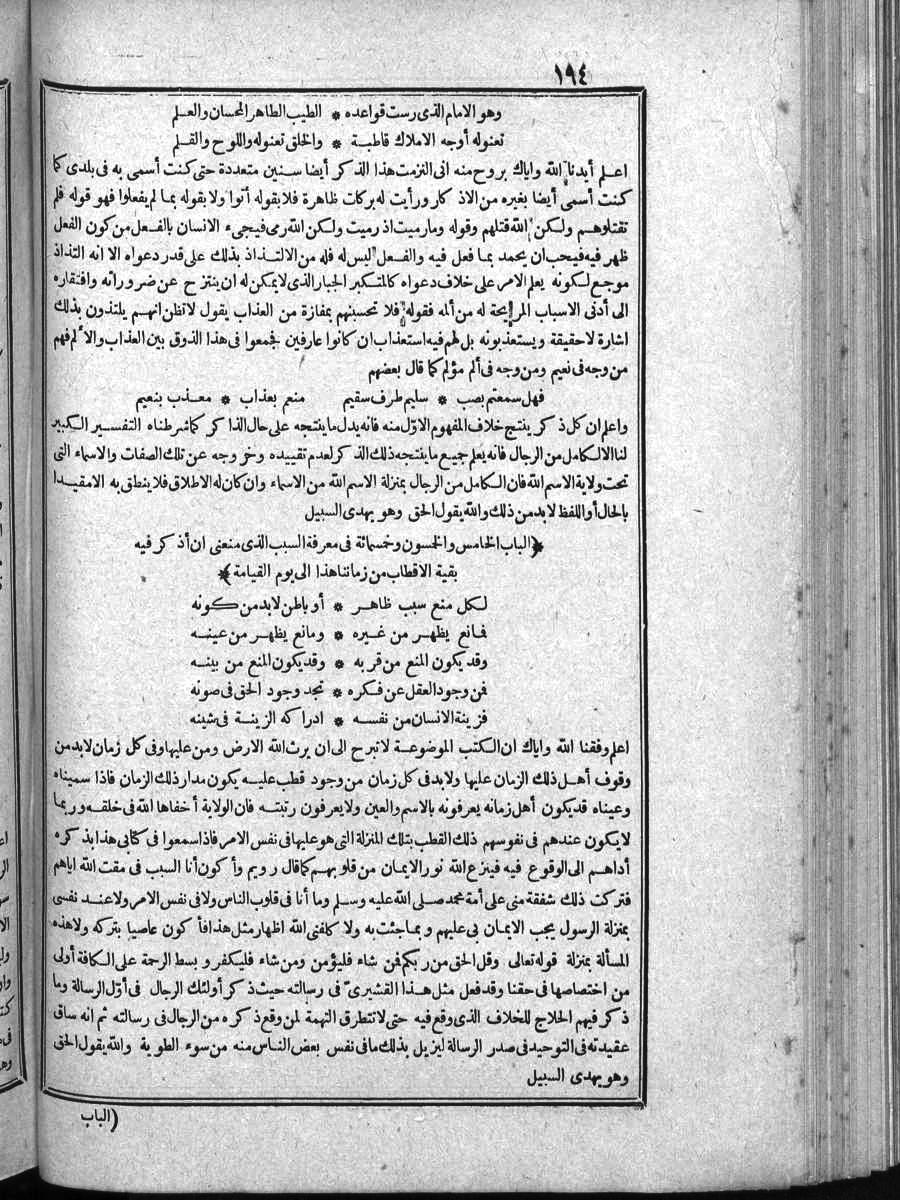 ١٩٤
وهو الامام الذى رست قواعده * الطيب الطاهر المحسان والعلم
تعنوله أوجه الاملاك قاطبة * والخلق تعنوله واللوح والقلم
اعلم أيدنا الله واياك بروح منه انى التزمت هذا الذكر أيضا سنين متعددة حتى كنت أسمى به فى بلدى كما
كنت أسمى أيضا بغيره من الاذكار ورأيت له بركات ظاهرة فلا بقوله أتوا ولا بقوله بما لم يفعلوا فهو قوله فلم
تقتلوهم ولكن الله قتلهم وقوله ومارميت اذ رميت ولكن الله رمى فيجىء الانسان بالفعل من كون الفعل
ظهر فيه فيحب ان يحمد بما فعل فيه والفعل ليس له فله من الالتذاذ بذلك على قدر دعواه الا انه التذاذ
موجع لكونه يعلم الامر على خلاف دعواه كالمتكبر الجبار الذى لا يمكن له ان ينتزح عن ضروراته وافتقاره
الى أدنى الاسباب المريحة له من ألمه فقوله فلا تحسبنهم بمفازة من العذاب يقول لا تظن انهم يلتذون بذلك
اشارة لا حقيقة ويستعذبونه بل لهم فيه استعذاب ان كانوا عارفين فجمعوا فى هذا الذوق بين العذاب والألم فهم
من وجه فى نعيم ومن وجه فى ألم مؤلم كما قال بعضهم
فهل سمعتم بصب * سليم طرف سقيم منعم بعذاب * معذب بنعيم
واعلم ان كل ذكر ينتج خلاف المفهوم الاوّل منه فانه يدل ما ينتجه على حال الذاكر كما شرطناه التفسير الكبير
لنا الا الكامل من الرجال فانه يعلم جميع ما ينتجه ذلك الذكر لعدم تقييده وخروجه عن تلك الصفات والاسماء التى
تحت ولاية الاسم الله فان الكامل من الرجال بمنزلة الاسم الله من الاسماء وان كان له الاطلاق فلا ينطق به الا مقيدا
بالحال أو اللفظ لابد من ذلك والله يقول الحق وهو يهدى السبيل
﴿الباب الخامس والخمسون وخمسمائة فى معرفة السبب الذى منعنى ان أذكر فيه
بقية الاقطاب من زماننا هذا الى يوم القيامة﴾
لكل منع سبب ظاهر * أو باطن لابد من كونه
فمانع يظهر من غيره * ومانع يظهر من عينه
وقد يكون المنع من قربه * وقد يكون المنع من بينه
فن وجود العقل عن فكره * تجد وجود الحق فى صونه
فزينة الانسان من نفسه * ادراكه الزينة فى شينه
اعلم وفقنا الله واياك ان الكتب الموضوعة لا تبرح الى ان يرث الله الارض ومن عليها وفى كل زمان لابد من
وقوف أهل ذلك الزمان عليها ولابد فى كل زمان من وجود قطب عليه يكون مدار ذلك الزمان فاذا سميناه
وعيناه قد يكون أهل زمانه يعرفونه بالاسم والعين ولا يعرفون رتبته فان الولاية أخفاها الله فى خلقه وربما
لا يكون عندهم فى نفوسهم ذلك القطب بتلك المنزلة التى هو عليها فى نفس الامر فاذا سمعوا فى كتابى هذا بذكره
أداهم الى الوقوع فيه فينزع الله نور الايمان من قلوبهم كما قال رويم وأكون أنا السبب فى مقت الله اياهم
فتركت ذلك شفقة منى على أمة محمد صلى الله عليه وسلم وما أنا فى قلوب الناس ولا فى نفس الامر ولا عند نفسى
بمنزلة الرسول يجب الايمان بى عليهم وبما جئت به ولا كلفنى الله اظهار مثل هذا فأكون عاصيا بتركه ولا هذه
المسألة بمنزلة قوله تعالى وقل الحق من ربكم فمن شاء فليؤمن ومن شاء فليكفر وبسط الرحمة على الكافة أولى
من اختصاصها فى حقنا وقد فعل مثل هذا القشيرىّ فى رسالته حيث ذكر أولئك الرجال فى أوّل الرسالة وما
ذكر فيهم الحلاج للخلاف الذى وقع فيه حتى لا تتطرق التهمة لمن وقع ذكره من الرجال فى رسالته ثم انه ساق
عقيدته فى التوحيد فى صدر الرسالة ليزيل بذلك ما فى نفس بعض الناس منه من سوء الطوية والله يقول الحق
وهو يهدى السبيل
(الباب